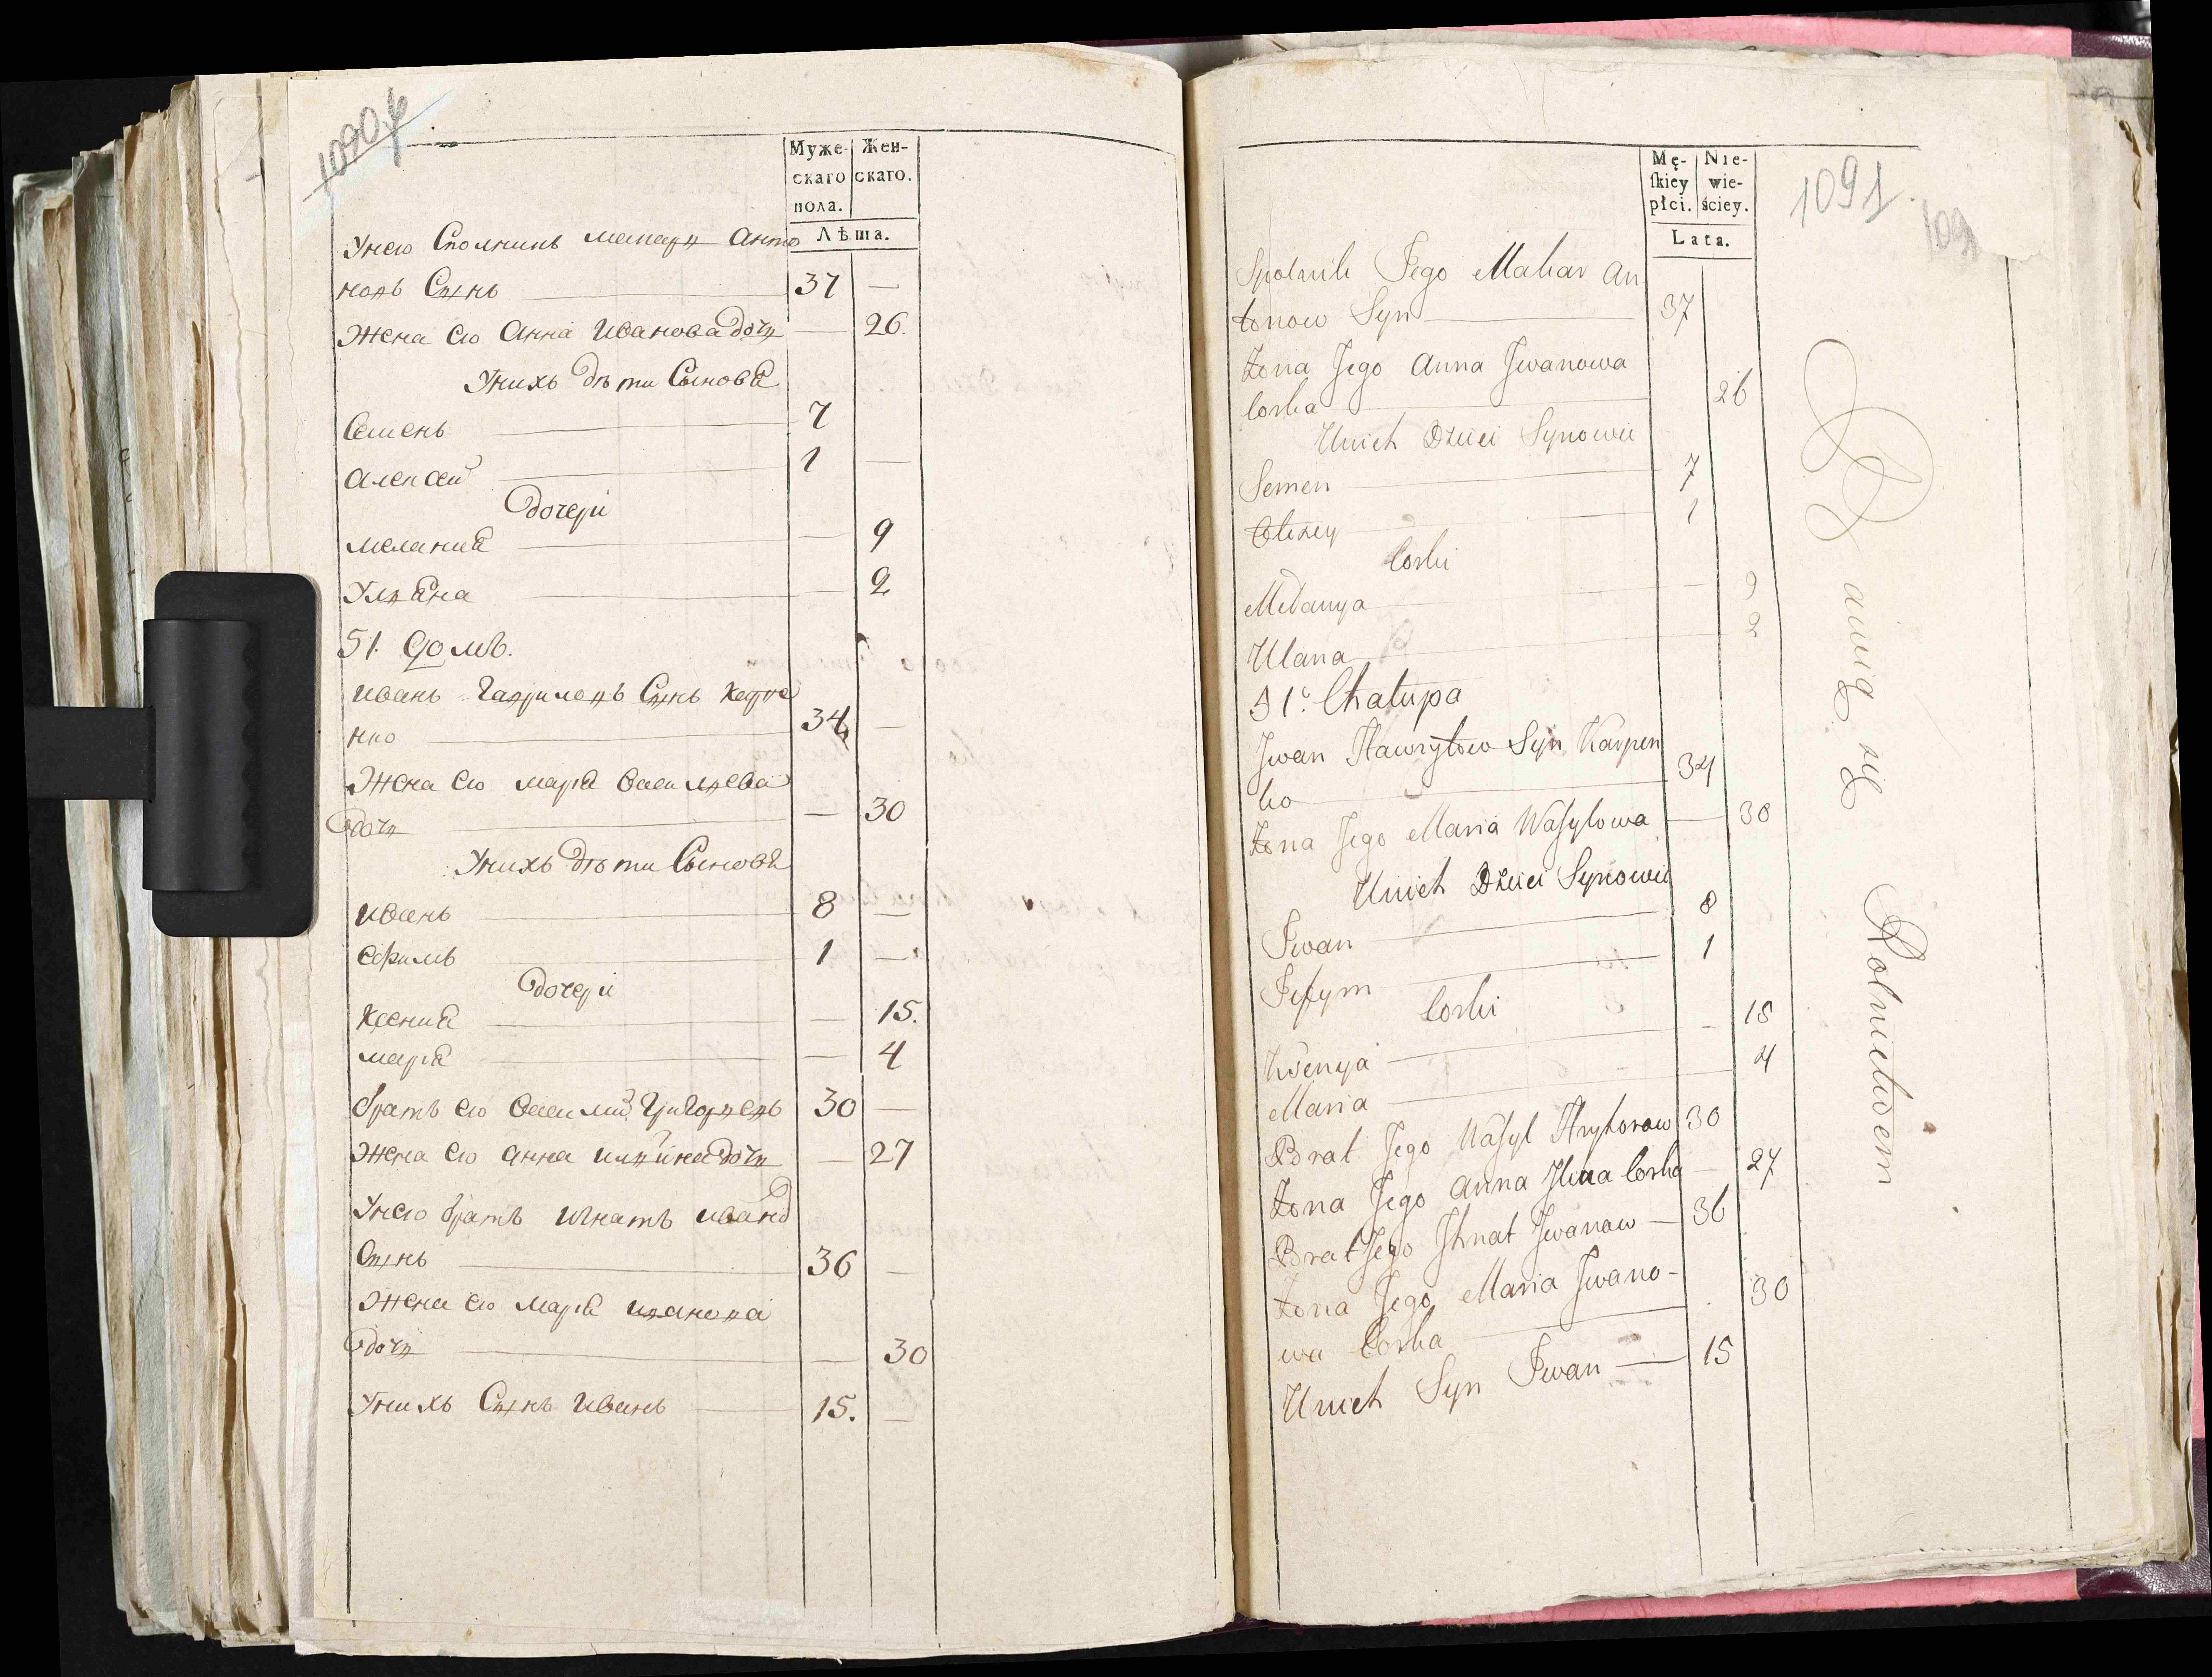 1090
Муже-
скаго
пола.
Жен-
скаго.
Лѣта.
Унего Сполникъ макаръ Анто
новъ Сынъ 37 —
Жена его Анна Иванова дочь — 26.
Унихъ дѣти Сыновя
Семенъ 7
Алексей 1 —
дочери
мелания — 9
Ульяна — 2
51. Домъ.
Иванъ Гавриловъ Сынъ Карпе
нко 34 —
Жена его марья Васильева
дочь — 30
Унихъ дѣти Сыновя
Иванъ 8 —
Ефимъ 1 —
дочери
Ксения — 15.
марья — 4
братъ его Василий Григорьевъ 30 —
Жена его Анна Ильина дочь — 27
Унего братъ Игнатъ Иванов
Сынъ 36 —
Жена его Марья Иванова
дочь — 30
Унихъ Сынъ Иванъ 15. —
1091
109
Mę-
skiey
płci.
Nie-
wie-
ściey.
Lata.
Spolnik Jego Makar An
tonow Syn 37
Zona Jego Anna Jwanowa
Corka 26
Unich Dzieci Synowie
Semen 7
Olexey 1
Corki
Melanya — 9
Ulana 2
51. Chałupa
Jwan Hawryłow Syn Karpen
ko 34
Zona Jego Maria Wasylowa — 30
Unich Dzieci Synowie
Jwan 8
Jefym 1
Corki
Ksenya — 15
Maria 4
Brat Jego Wasyl Hryhorow 30
Zona Jego Anna Jlina Corka — 27
Brat Jego Jhnat Jwanaw — 36
Zona Jego Maria Jwano-
wa Corka 30
Unich Syn Jwan — 15
Bawią się Rolnictwem